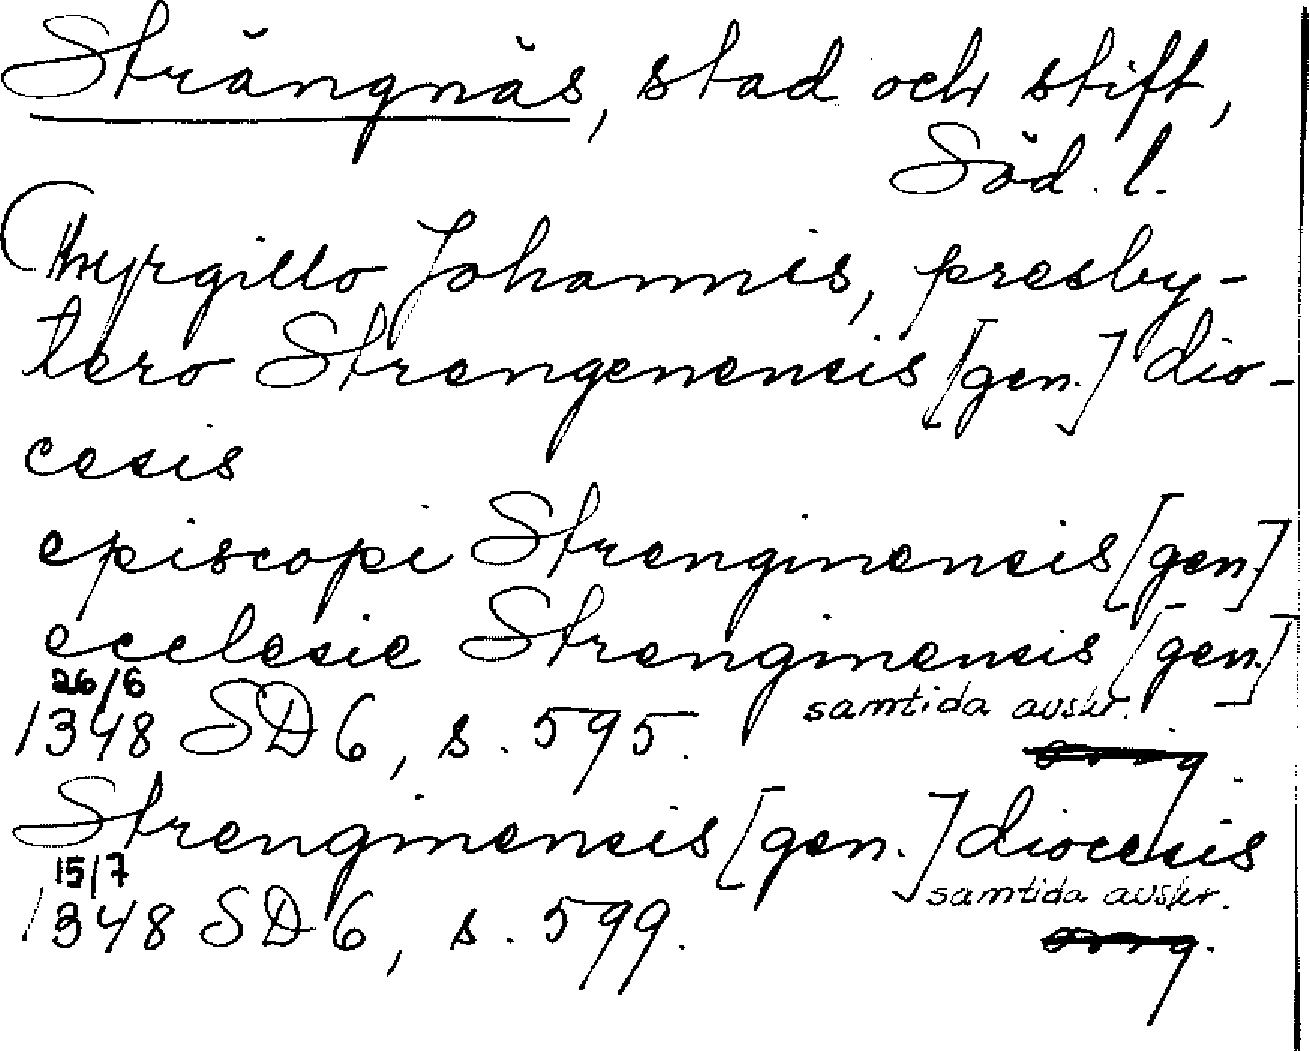 Strängnäs, stad och stift,
Söd. l.
Thyrgillo Johannis, presby-
tero Strengenensis [gen.] dio-
cesis
episcopi Stregninensis [gen.]
ecclesie Strenginensis [gen.]
26/6
1348 SD 6, s. 595. samtida avskr.
Strenginensis [gen.] diocesis
15/7
1348 SD 6, s. 599. samtida avskr.